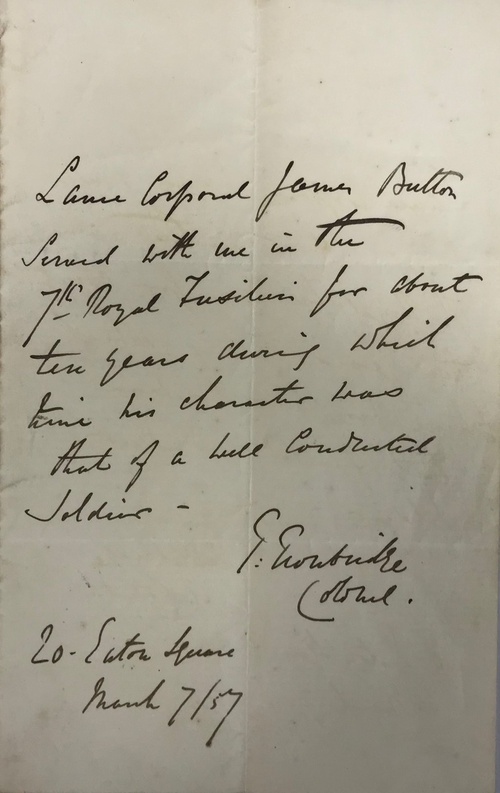 Lance Corporal James Button
Served with me in the
7th Royal Fusiliers for about
ten years during which
time his character was
that of a well Conducted
Soldier -
T. Troubridge
Colonel.
20 - Eaton Square
March 7/57